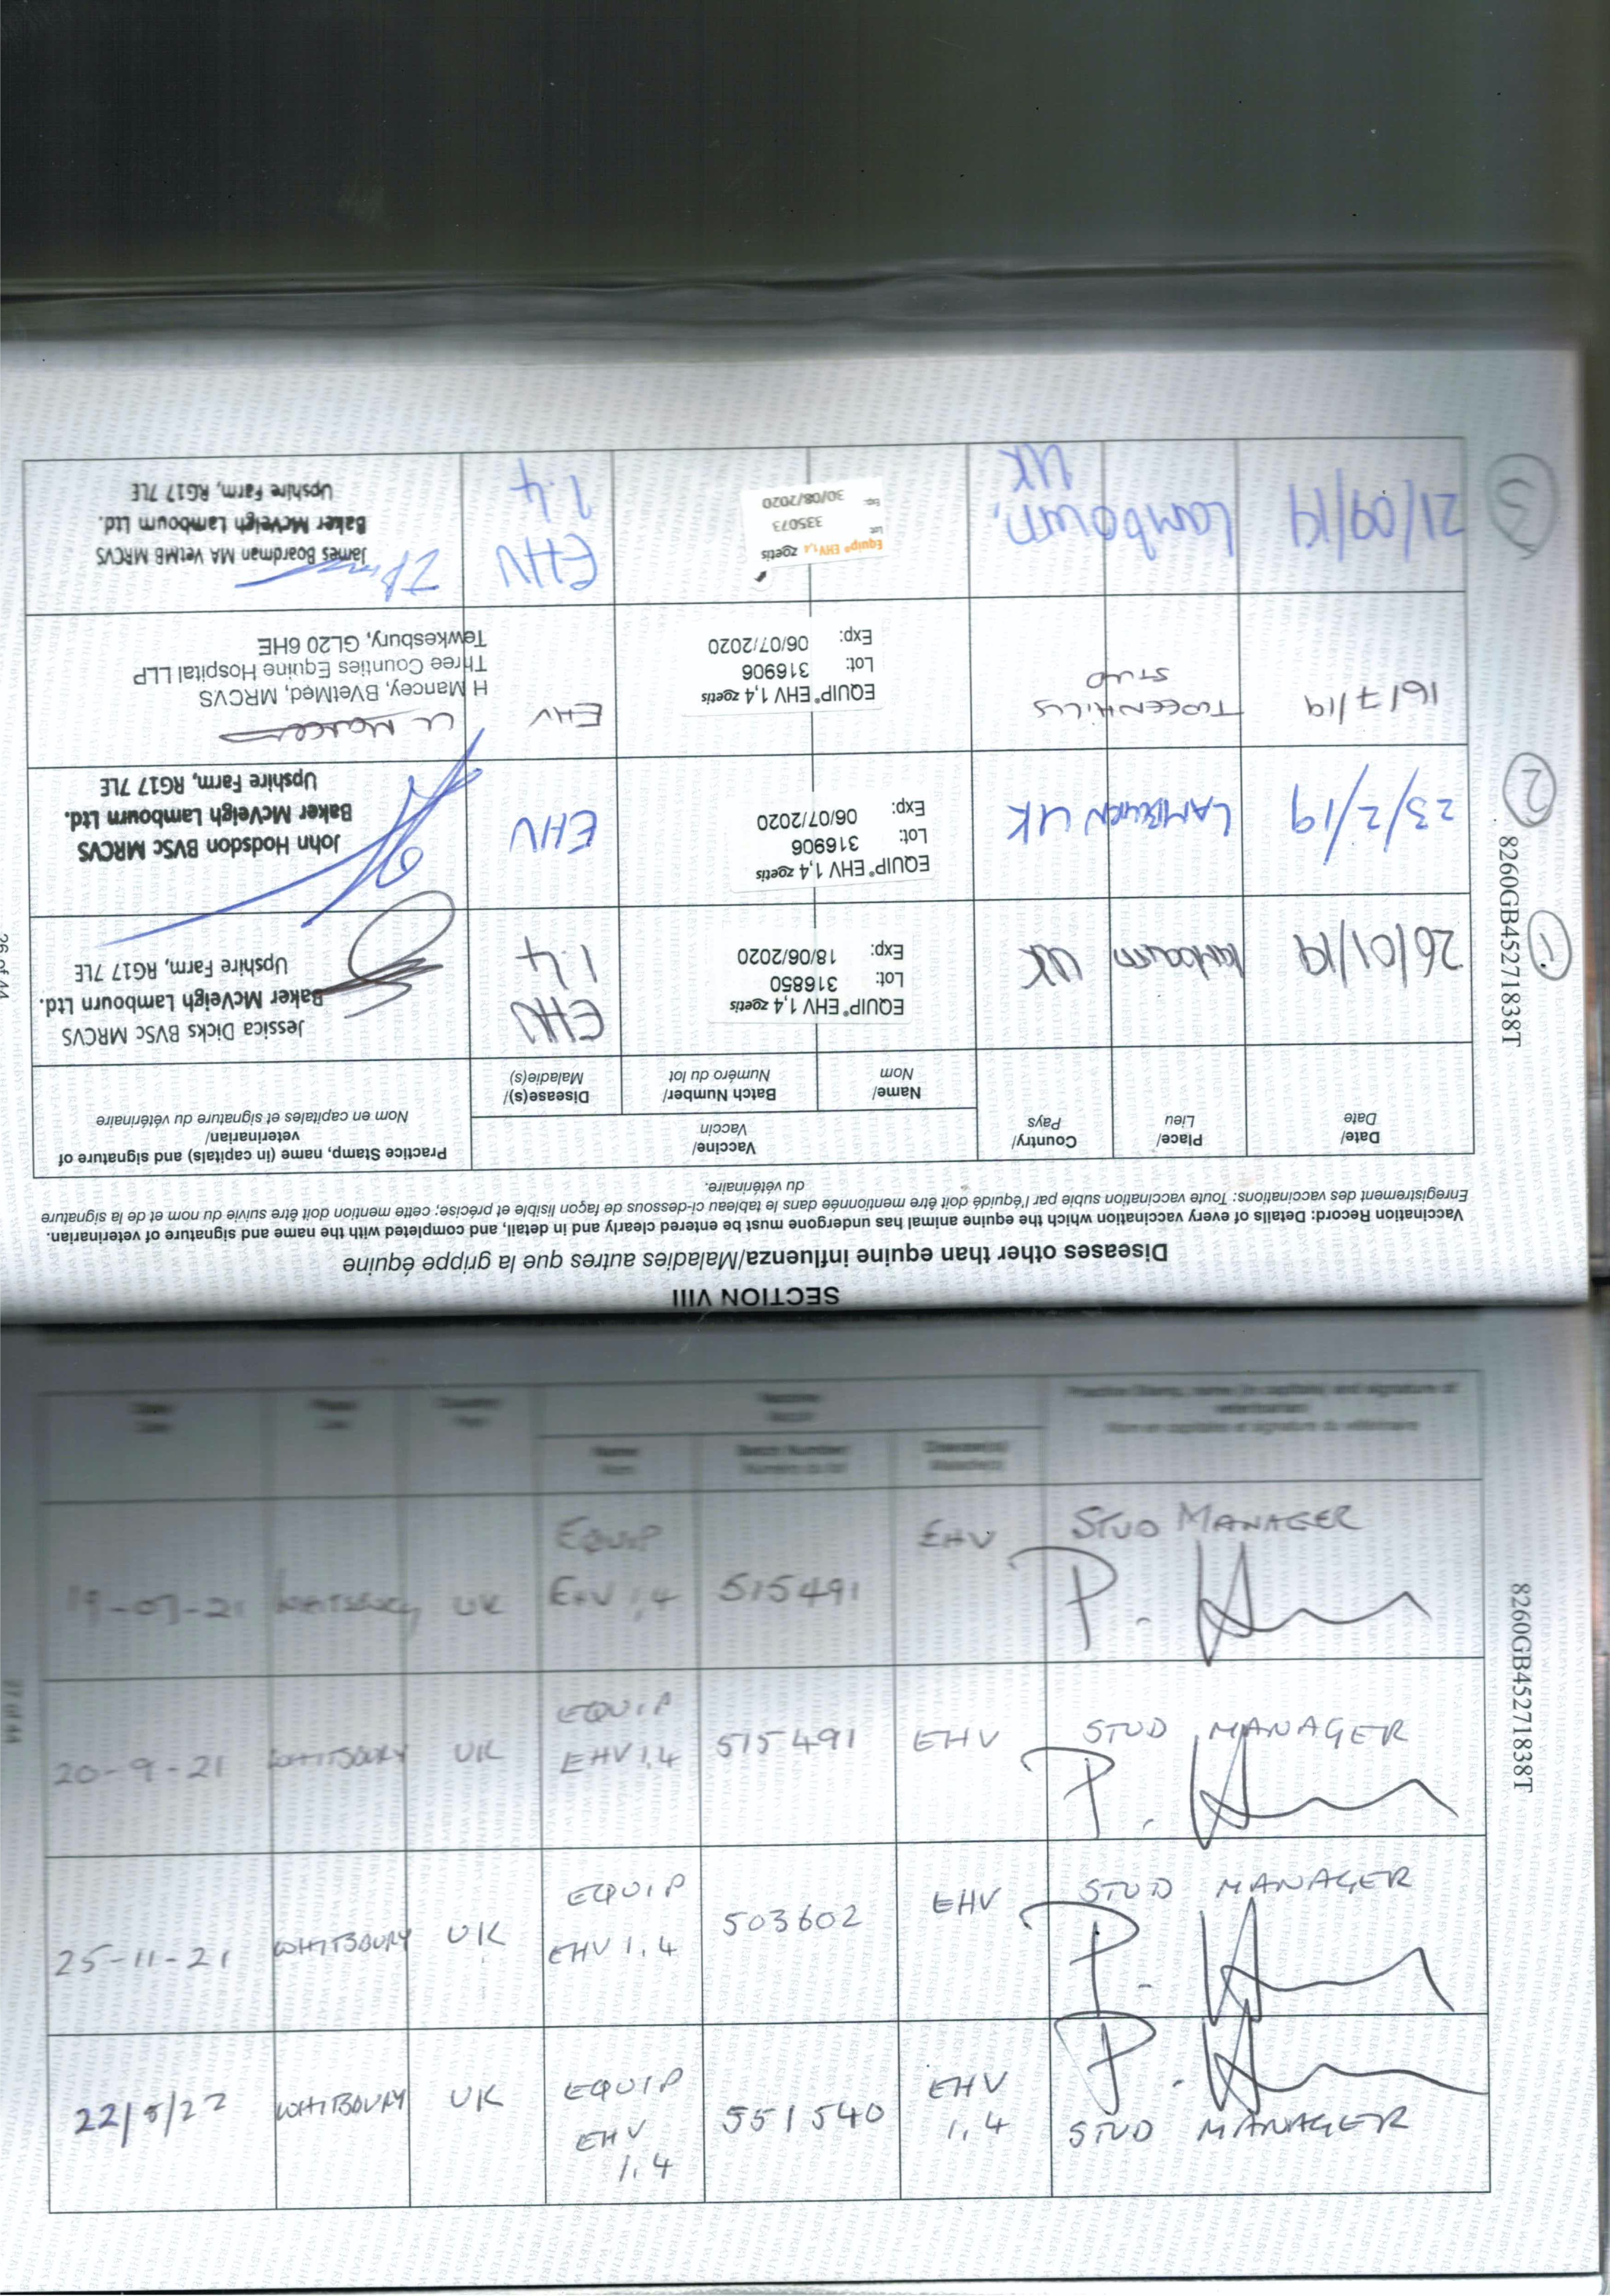 SECTION VIII
Diseases other than equine influenza/Maladies autres que la grippe équine
Vaccination Record: Details of every vaccination which the equine animal has undergone must be entered clearly and in detail, and completed with the name and signature of veterinarian.
Enregistrement des vaccinations: Toute vaccination subie par l'équidé doit être mentionnée dans le tableau ci-dessous de façon lisible et précise; cette mention doit être suivie du nom et de la signature
du vétérinaire.
Date/
Date
Place/
Lieu
Country/
Pays
Vaccine/
Vaccin
Name/
Nom
Batch Number/
Numéro du lot
Disease(s)/
Maladie(s)
Practice Stamp, name (in capitals) and signature of
veterinarian/
Nom en capitales et signature du vétérinaire
1
26/01/19
Lambourn
UK
EQUIP® EHV 1,4 zoetis
Lot: 316850
Exp: 18/06/2020
EHV
1.4
Jessica Dicks BVSc MRCVS
Baker McVeigh Lambourn Ltd.
Upshire Farm, RG17 7LE
2
23/2/19
LAMBOURN UK
EQUIP® EHV 1,4 zoetis
Lot: 316906
Exp: 06/07/2020
EHV
John Hodsdon BVSc MRCVS
Baker McVeigh Lambourn Ltd.
Upshire Farm, RG17 7LE
16/7/19
TWEENHILLS
STUD
EQUIP® EHV 1,4 zoetis
Lot: 316906
Exp: 06/07/2020
EHV
H Mancey, BVetMed, MRCVS
Three Counties Equine Hospital LLP
Tewkesbury, GL20 6HE
3
21/09/19
Lambourn,
UK
Equip® EHV 1,4 zoetis
Lot: 335073
Exp: 30/08/2020
EHV
1.4
James Boardman MA VetMB MRCVS
Baker McVeigh Lambourn Ltd.
Upshire Farm, RG17 7LE
8260GB45271838T
26 of 44
Practice Stamp, name (in capitals) and signature of
veterinarian/
Nom en capitales et signature du vétérinaire
Name/
Nom
Batch Number/
Numéro du lot
Disease(s)/
Maladie(s)
19-07-21
WHITSBURY
UK
EQUIP
EHV 1,4
515491
EHV
STUD MANAGER
20-9-21
WHITSBURY
UK
EQUIP
EHV 1,4
515491
EHV
STUD MANAGER
25-11-21
WHITSBURY
UK
EQUIP
EHV 1,4
503602
EHV
STUD MANAGER
22/5/22
WHITSBURY
UK
EQUIP
EHV
1,4
551540
EHV
1,4
STUD MANAGER
8260GB45271838T
27 of 44